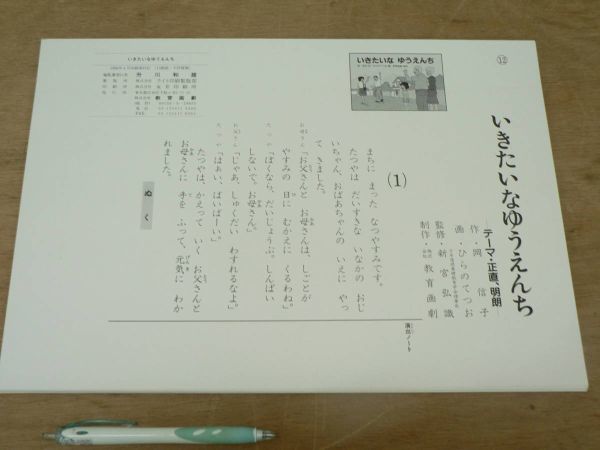 ⑫
いきたいなゆうえんち
―テーマ・正直、明朗―
作・岡 信子
画・ひらのてつお
監修・新宮弘識
制作・株式会社 教育画劇
いきたいな ゆうえんち
(1)
まちに まった なつやすみです。
たつやは だいすきな いなかの おじ
いちゃん、おばあちゃんの いえに やっ
て きました。
お母さん「お父さんと お母さんは、しごとが
やすみの 日に むかえに くるわね。」
たつや「ぼくなら、だいじょうぶ。しんぱい
しないで。お母さん」
お父さん「じゃあ、しゅくだい わすれるなよ。」
たつや「はぁい、ばいばーい。」
たつやは、かえって いく お父さんと
お母さんに 手を ふって、元気に わか
れました。
ぬく
演出ノート
いきたいなゆうえんち
升川和雄
株式会社 教育画劇